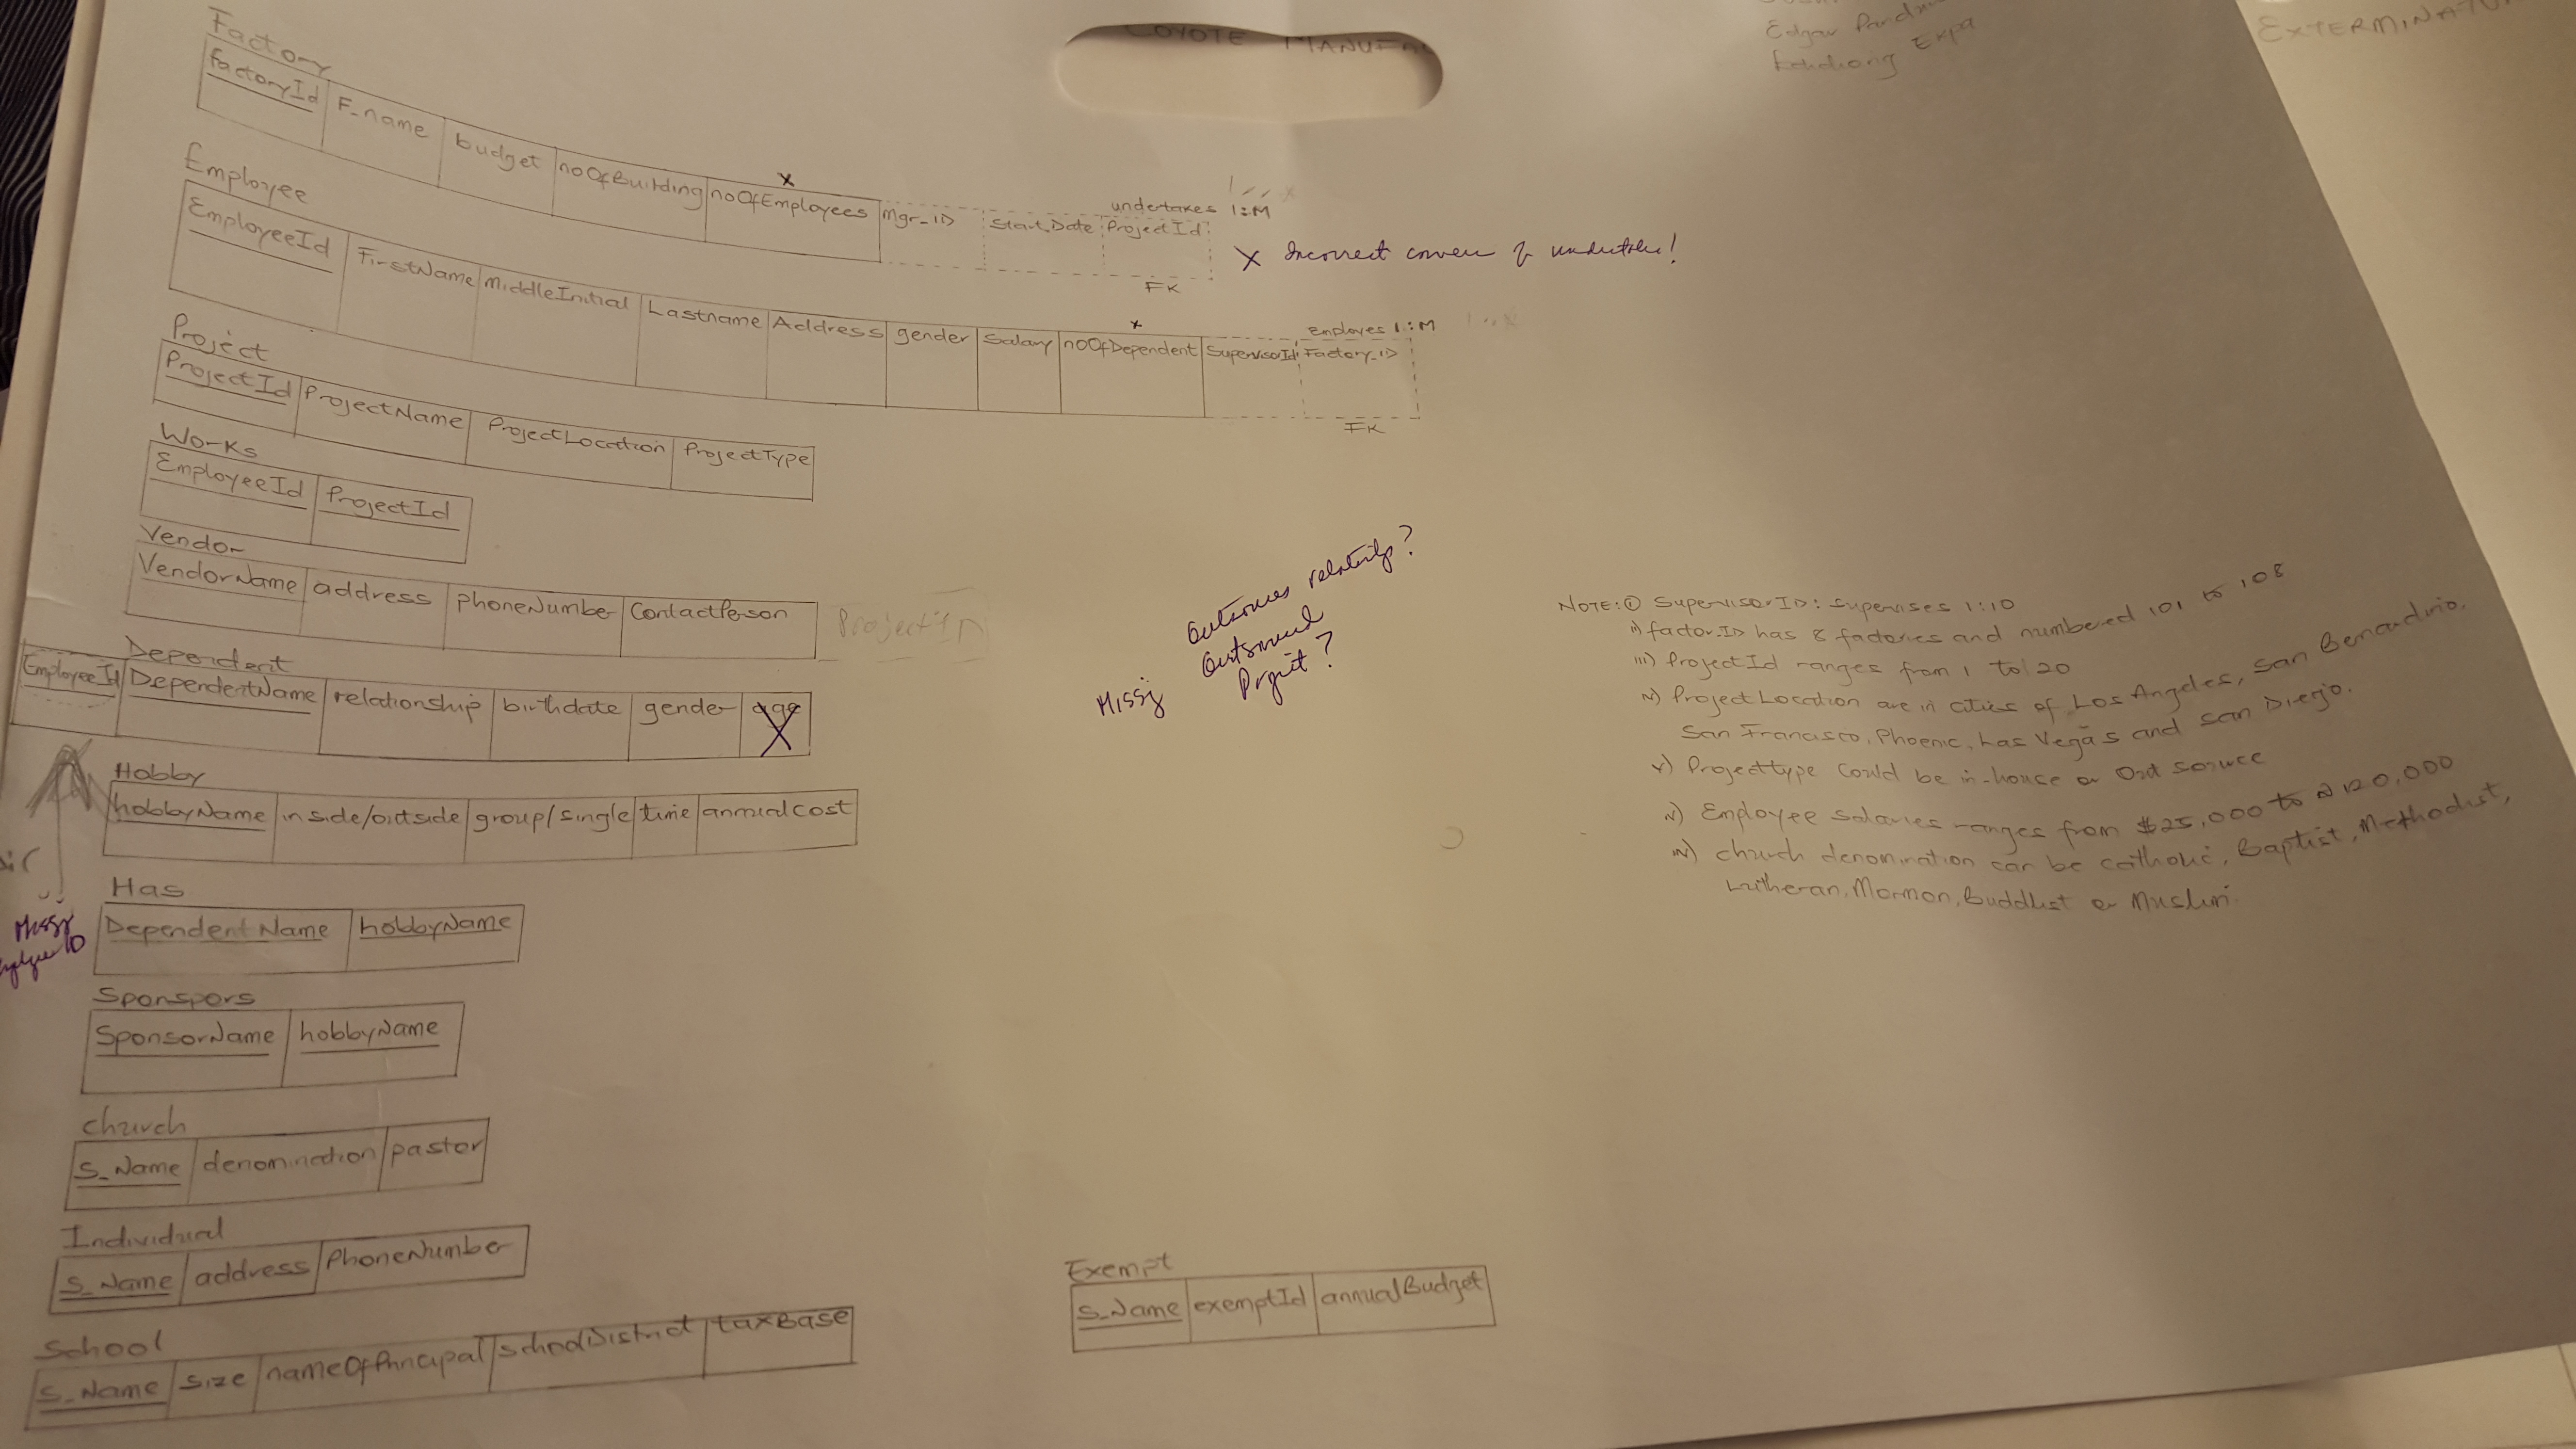 COYOTE MANUF
Edgar
EXTERMINAT
Factory
factoryId F_name budget noOfBuilding noOfEmployees Mgr_ID Start.Date ProjectId
X
undertakes 1:M
FK
X Incorrect
Employee
EmployeeId FirstName MiddleInitial Lastname Address gender Salary noOfDependent SupervisorId Factory_ID
x
Employes 1:M
FK
Project
ProjectId ProjectName ProjectLocation ProjectType
Works
EmployeeId ProjectId
Vendor
VendorName address phoneNumber ContactPerson ProjectID
Dependent
EmployeeId DependentName relationship birthdate gender age
X
Hobby
hobbyName inside/outside group/single time annualCost
Has
DependentName hobbyName
Sponspors
SponsorName hobbyName
church
S_Name denomination pastor
Individual
S_Name address PhoneNumber
School
S_Name size nameOfPrincipal schoolDistrict taxBase
Exempt
S_Name exemptId annualBudget
Outsources relationship?
NOTE: ① SupervisorID: supervises 1:10
ii) factor.ID has 8 factories and numbered 101 to 108
iii) ProjectId ranges from 1 to 20
iv) Project Location are in cities of Los Angeles, San Benardino,
San Francisco, Phoenic, Las Vegas and San Diego.
v) Projecttype could be in-house or Out source
v) Employee salaries ranges from $25,000 to $120,000
iv) church denomination can be catholic, Baptist, Methodist,
Lutheran, Mormon, Buddhist or Muslim.